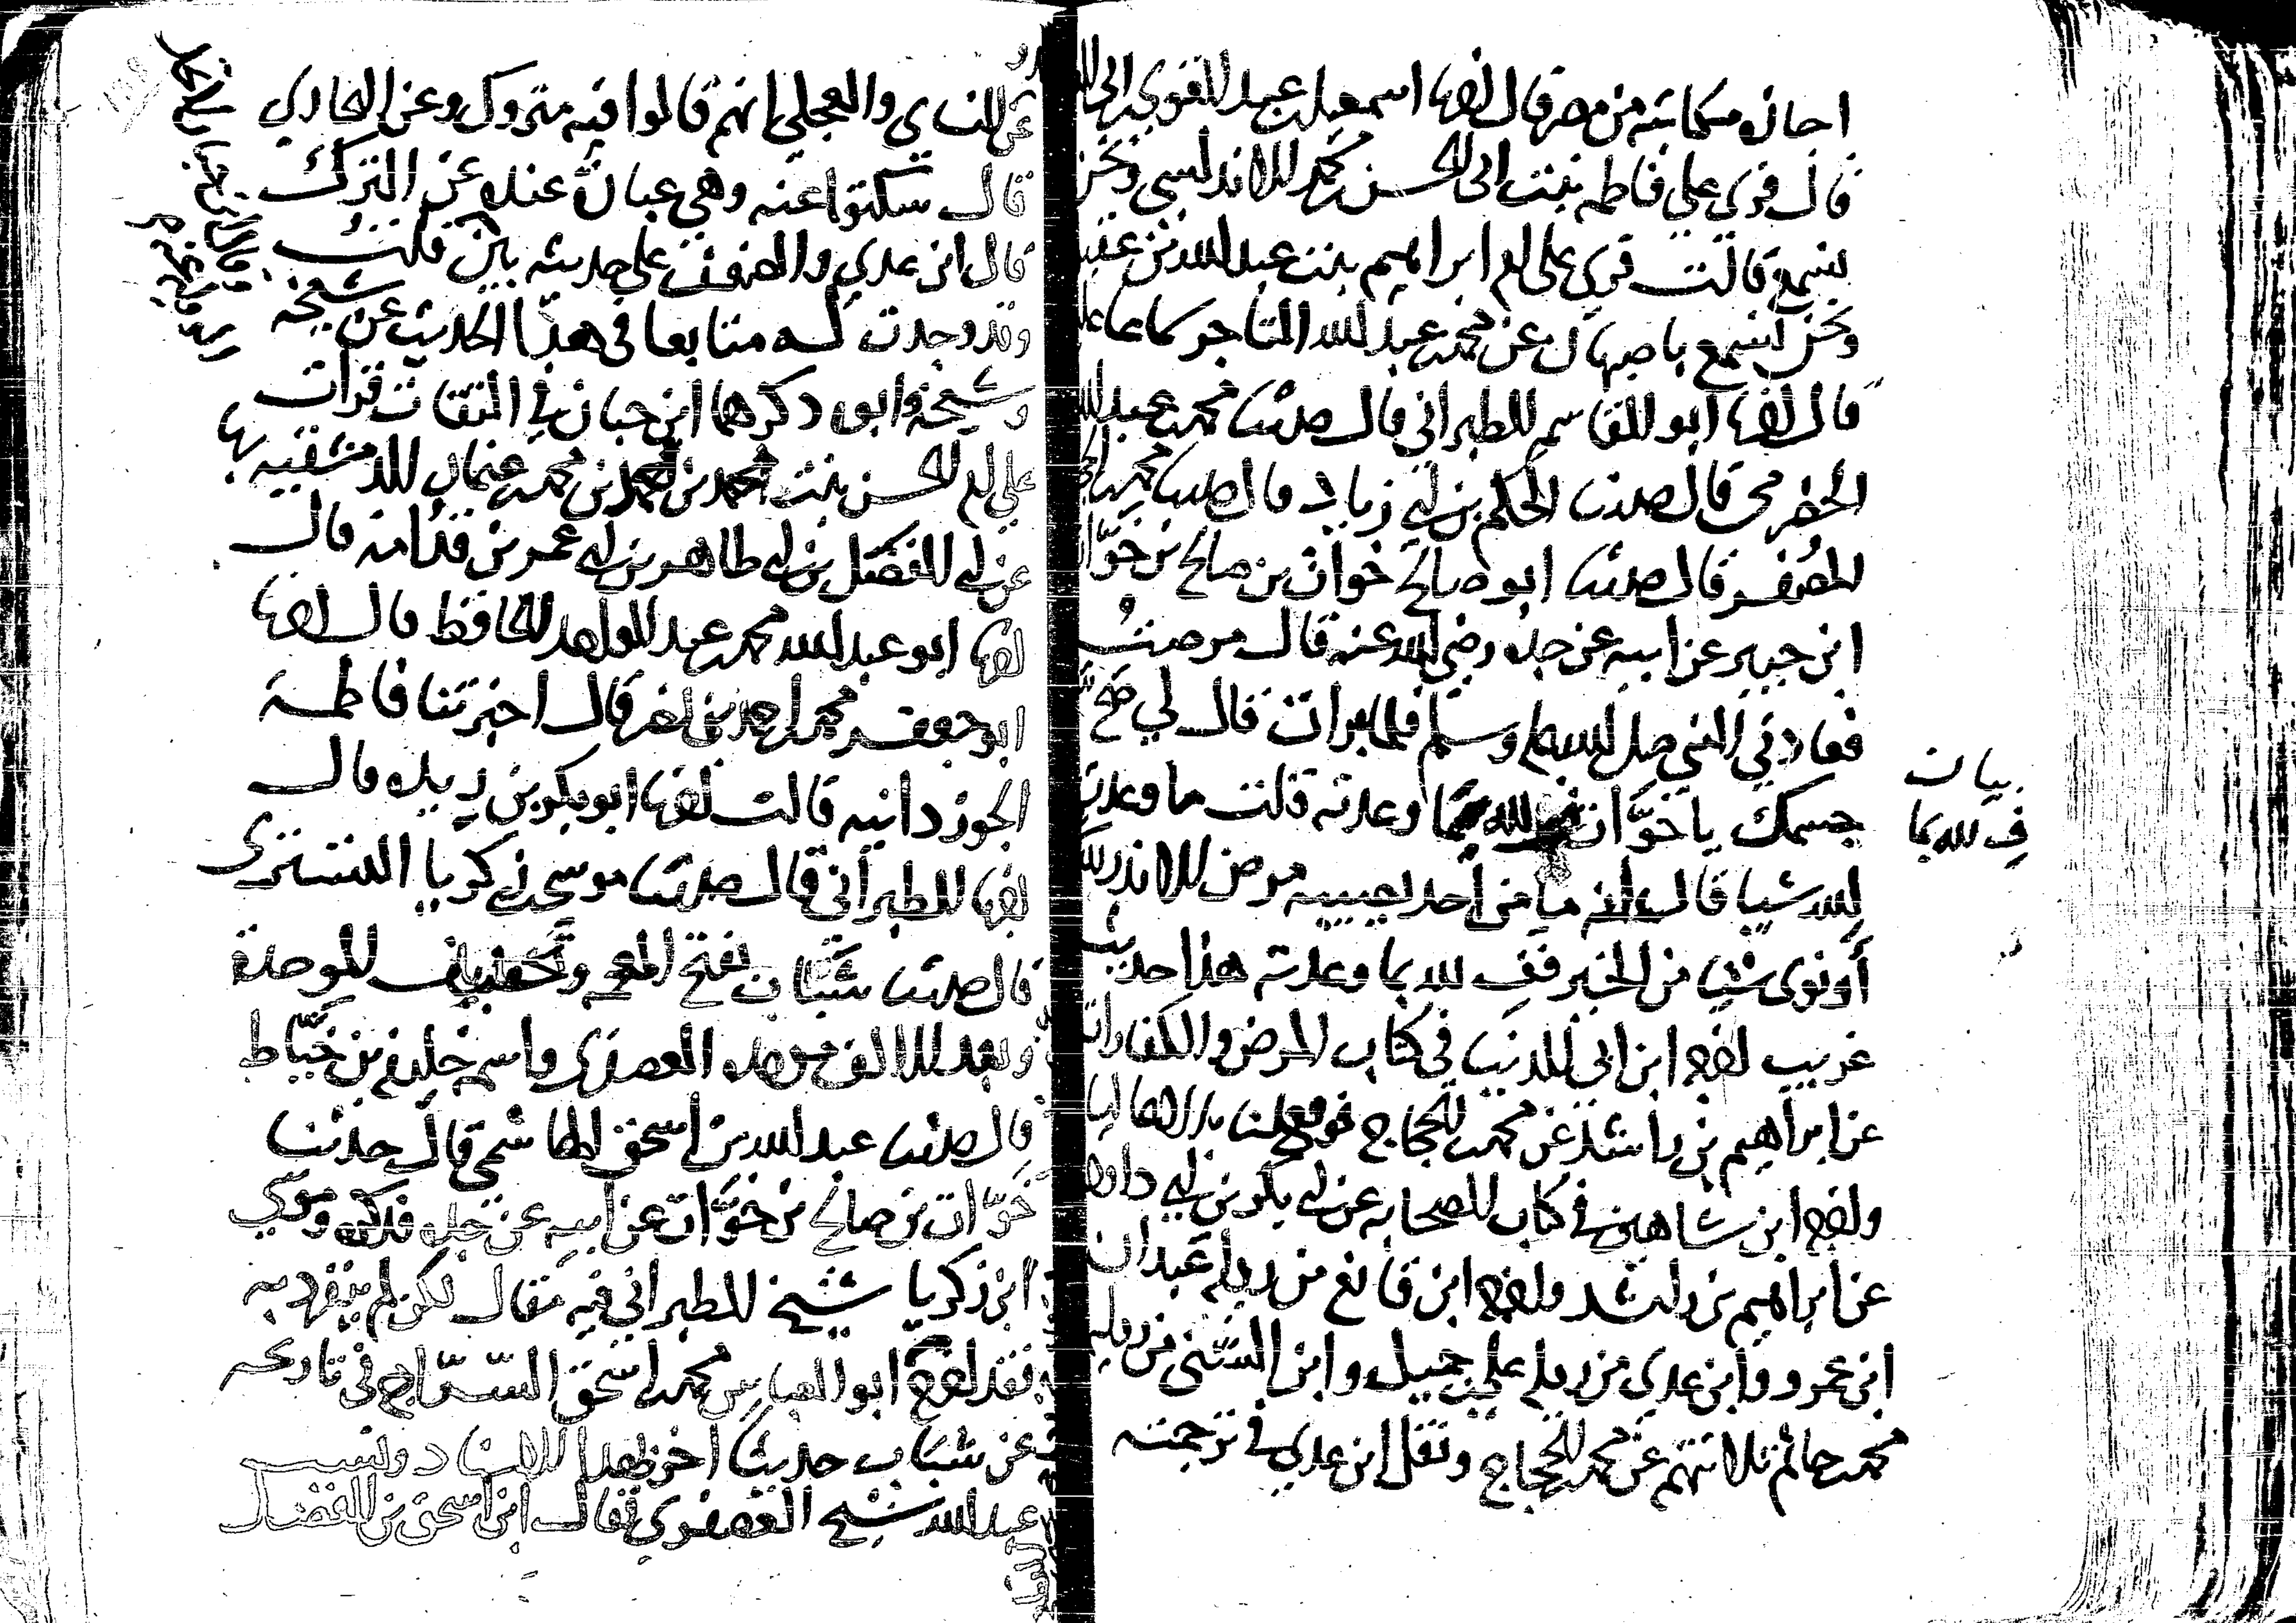 اجازة مكاتبة من مصر قال انا اسمعيل بن عبد القوي
قال قري علي فاطمة بنت ابي الحسن سعد الاندلسي ونحن
نسمع قالت قري على ام ابراهيم بنت عبد الله بن
ونحن نسمع باصبهان عن محمد بن عبد الله التاجر سماعا عليه
قال انا ابو القاسم الطبراني قال حدثنا محمد بن عبد الله
الحضرمي قال حدثنا الحكم بن ابي زياد قال حدثنا محمد بن الحجاج
المصفر قال حدثنا ابو صالح خوات بن صالح بن خوات
ابن جبير عن ابيه عن جده رضي الله عنه قال مرضت
فعادني النبي صلى الله عليه وسلم فلما برات قال لي صح
جسمك يا خوّات ف لله بما وعدته قلت ما وعدت
لله شيا قال انه ما من احد يصيبه مرض الا نذر لله
أو نوى شيا من الخير فف لله بما وعدته هذا حديث
غريب اخرجه ابن ابي الدنيا في كتاب المرض والكفارات
عن ابراهيم بن راشد عن محمد بن الحجاج فوقع لنا بدلا عاليا
واخرجه ابن شاهين في كتاب الصحابة عن ابي بكر بن ابي داود
عن ابراهيم بن راشد واخرجه ابن قانع من رواية عبدان
ابن عمرو وابن عدي من رواية علي بن جميل وابن السني من رواية
محمد بن حاتم ثلاثتهم عن محمد بن الحجاج ونقل ابن عدي في ترجمته
بيان
فِ لله بما
عن النساي والعجلي انهم قالوا فيه متروك وعن البخاري
قال سكتوا عنه وهي عبارة عنده عن الترك
قال ابن عدي والضعف على حديثه بيّن قلت
وقد وجدت له متابعا في هذا الحديث عن شيخه
وشيخه وابوه ذكرهما ابن حبان في الثقات قرات
علي ام الحسن بنت محمد بن احمد بن محمد بن عثمان الدمشقية بها
عن ابي الفضل بن ابي طاهر بن ابي عمر بن قدامة قال
انا ابو عبد الله محمد بن عبد الواحد الحافظ قال انا
ابو جعفر محمد بن احمد بن نصر قال اخبرتنا فاطمة
الجوزدانيه قالت انا ابو بكر بن ريذه قال
انا الطبراني قال حدثنا موسى بن زكريا التستري
قال حدثنا شباب بفتح المعجمة وتخفيف الموحدة
وبعد الالف موحدة العصفري واسمه خليفة بن خيّاط
قال حدثنا عبد الله بن اسحق الهاشمي قال حدثنا
خوّات بن صالح بن خوّات عن ابيه عن جده فذكره وموسي
ابن زكريا شيخ الطبراني فيه مقال لكن لم ينفرد به
فقد اخرج ابو العباس محمد بن اسحق السّرّاج في تاريخه
عن شباب حديثا اخر بهذا الاسناد ونسب
عبد الله شيخ العصفري فقال ابن اسحق بن الفضل